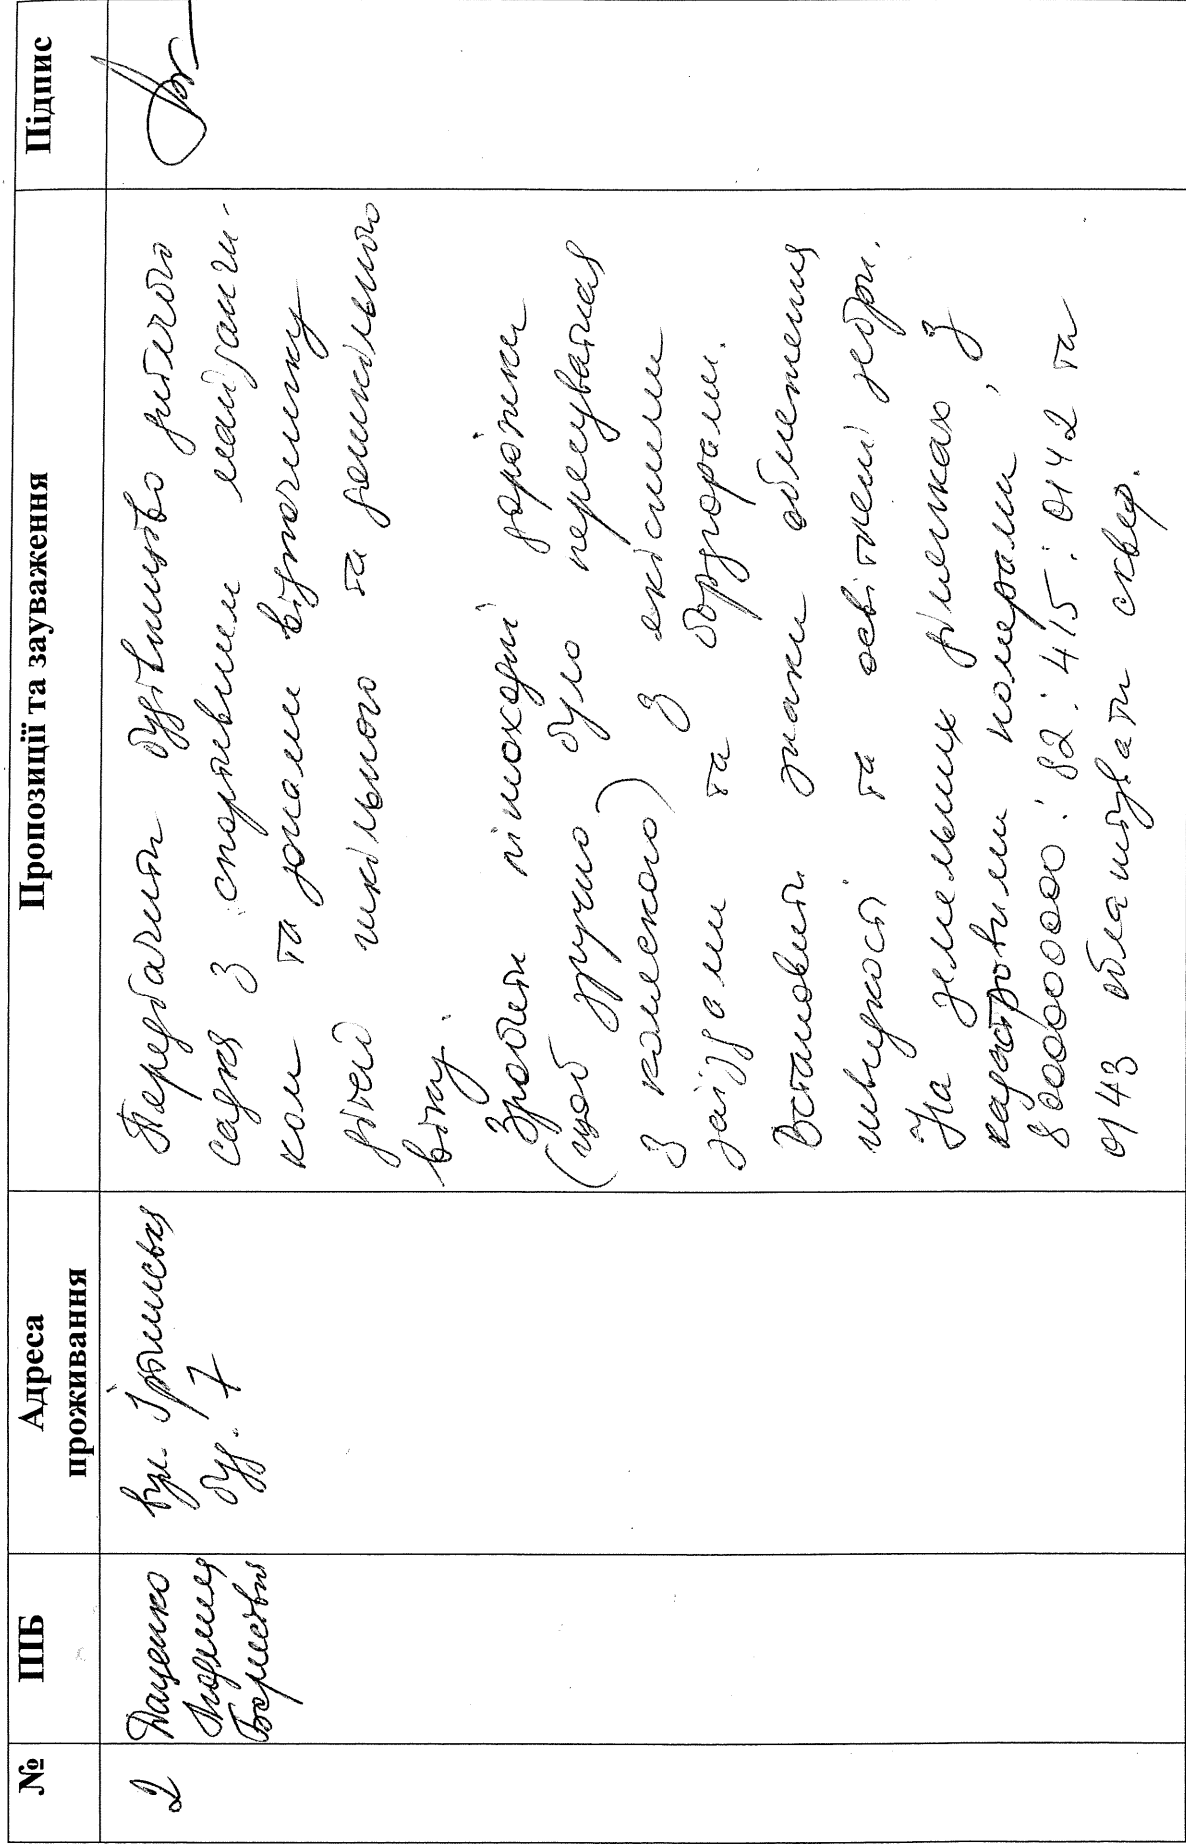 №
ПІБ
Адреса
проживання
Пропозиції та зауваження
Підпис
2
Даценко
Людмила
Борисівна
вул.
буд. 7
Передбачити будівництво дитячого
садка з спортивним майданчи-
ком та зонами відпочинку
дітей шкільного та дошкільного
віку.
Зробити пішохідні доріжки
(щоб зручно було пересуватися
з коляскою) з якісними
заїздами та бордюрами.
Встановити знаки обмеження
швидкості та освітлені зебри.
На земельних ділянках, з
кадастровими номерами
8000000000:82:415:0142 та
0143 облаштувати сквер.